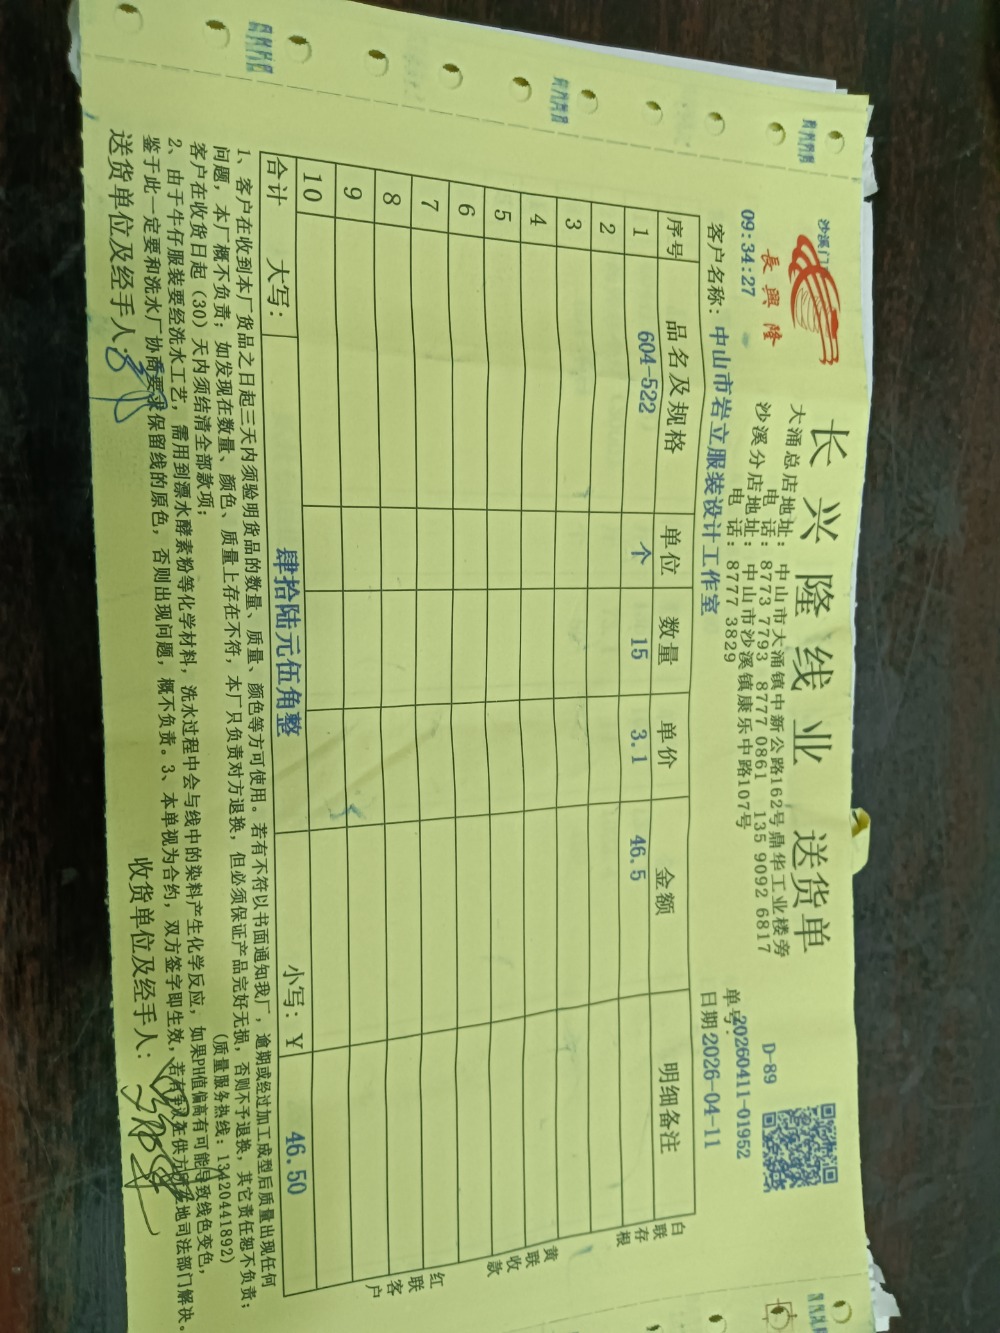 沙溪门
長興隆
长兴隆线业 送货单
大涌总店地址：中山市大涌镇中新公路162号鼎华工业楼旁
电 话：8773 7793 8777 0861 135 9092 6817
沙溪分店地址：中山市沙溪镇康乐中路107号
电 话：8777 3829
D-89
单号：20260411-01952
日期 2026-04-11
09:34:27
客户名称：中山市岩立服装设计工作室
序号 品名及规格 单位 数量 单价 金额 明细备注
1 604-522 个 15 3.1 46.5
2
3
4
5
6
7
8
9
10
合计 大写： 肆拾陆元伍角整 小写：￥ 46.50
白联存根
黄联收款
红联客户
1、客户在收到本厂货品之日起三天内须验明货品的数量、质量、颜色等方可使用。若有不符以书面通知我厂，逾期或经过加工成型后质量出现任何
问题，本厂概不负责；如发现在数量、颜色、质量上存在不符，本厂只负责对方退换，但必须保证产品完好无损，否则不予退换，其它责任恕不负责；
客户在收货日起（30）天内须结清全部款项；
（质量服务热线：13420441892）
2、由于牛仔服装要经洗水工艺，需用到漂水酵素粉等化学材料，洗水过程中会与线中的染料产生化学反应，如果PH值偏高有可能导致线色变色，
鉴于此一定要和洗水厂协商要求保留线的原色，否则出现问题，概不负责。3、本单视为合约，双方签字即生效，若有争议在供方所在地司法部门解决。
送货单位及经手人： 收货单位及经手人：